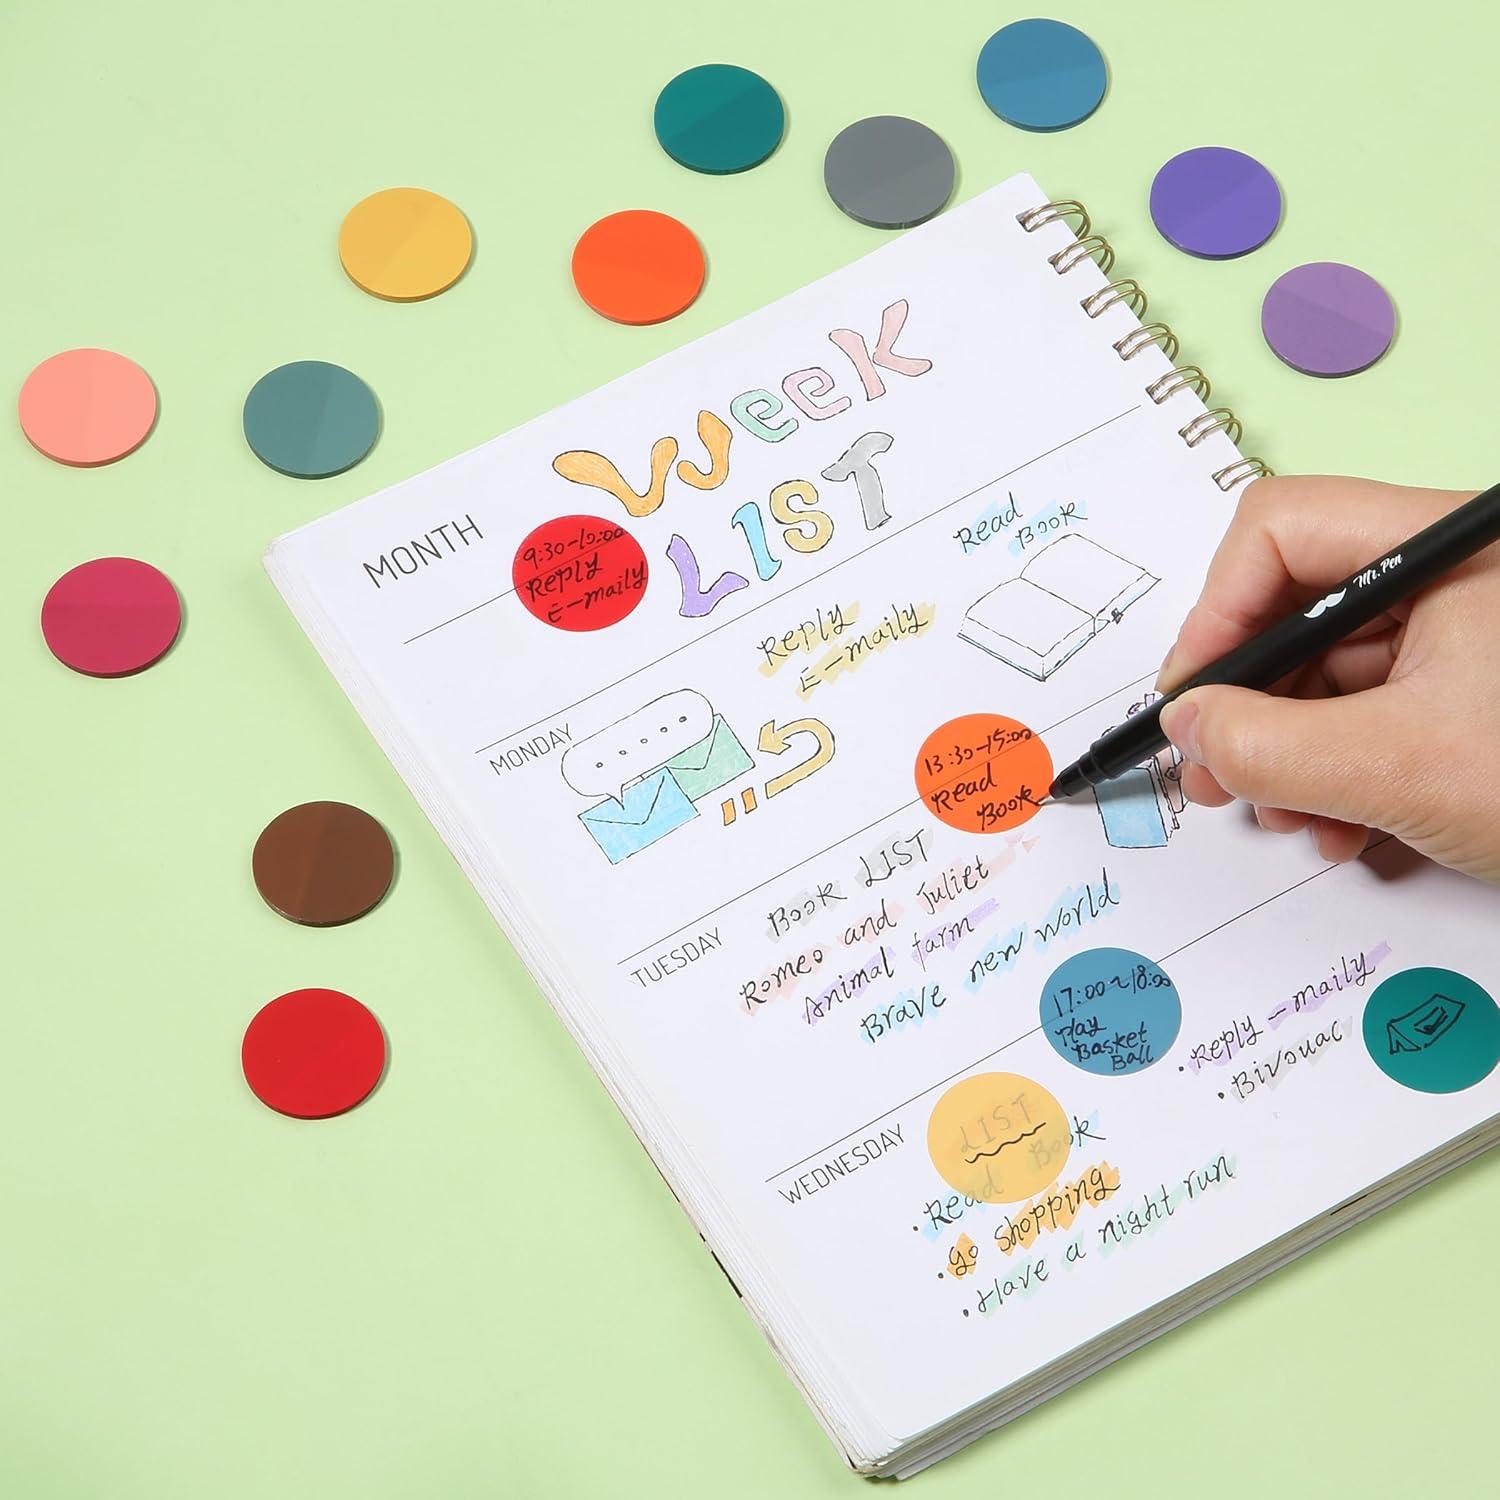 Week
LIST
MONTH
9:30-10:00
Reply
E-maily
Read
Book
Reply
E-maily
MONDAY
13:30-15:00
Read
Book
Mr. Pen
Book LIST
Romeo and Juliet
Animal farm
Brave new world
TUESDAY
17:00~18:00
Play
Basket
Ball
• Reply-maily
• Bivouac
WEDNESDAY
LIST
• Read Book
• go shopping
• Have a night run